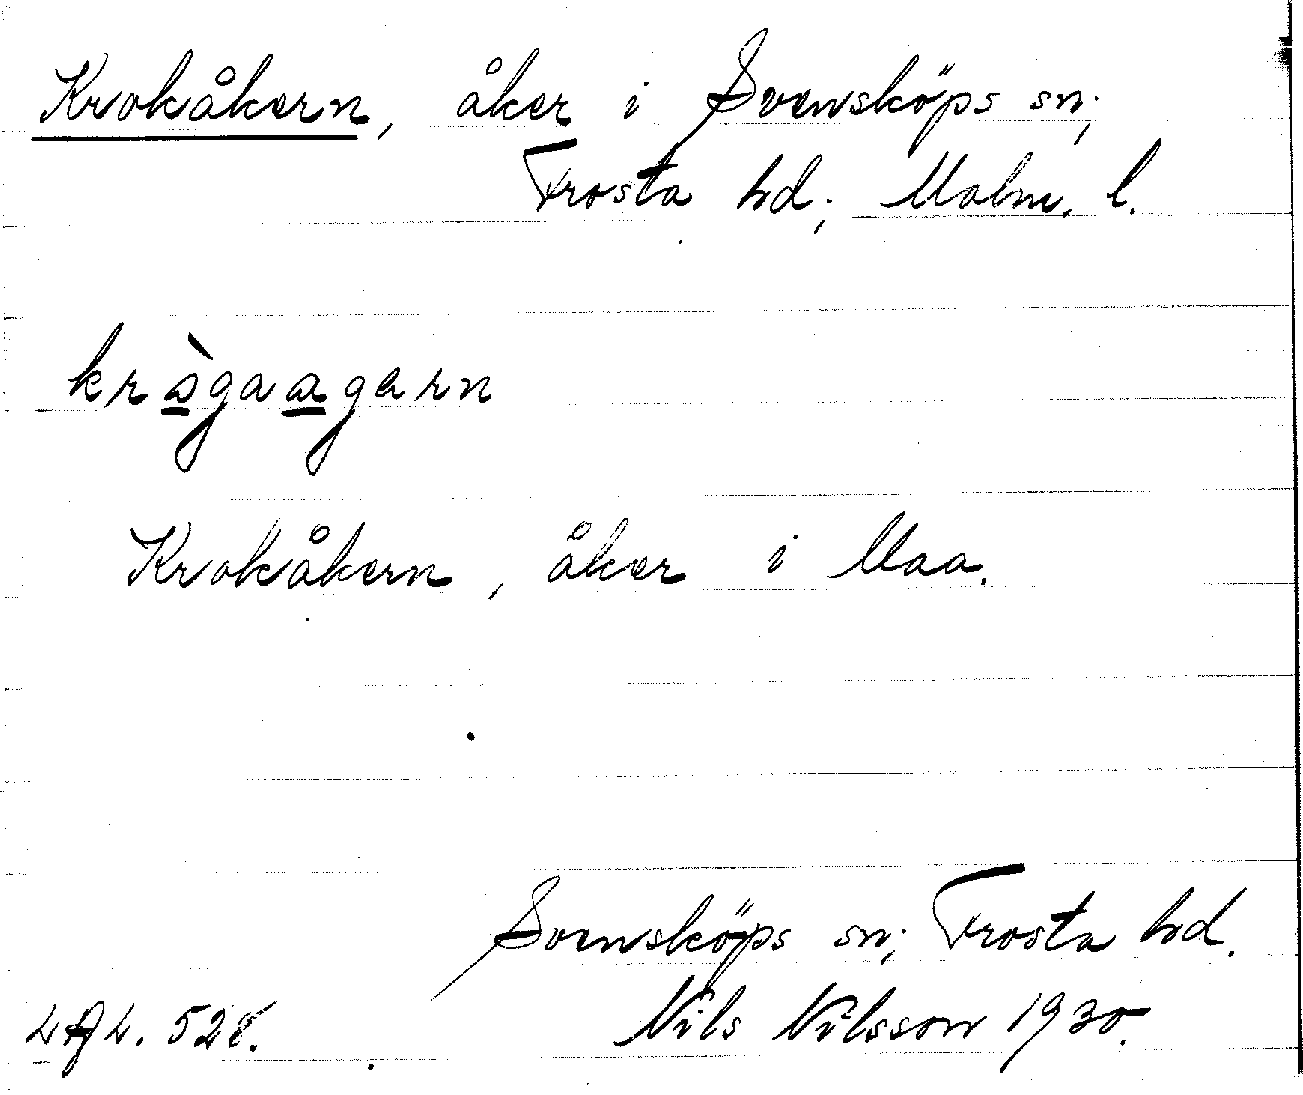 Krokåkern, åker i Svensköps sn;
Frosta hd; Malm. l.
krògaagarn
Krokåkern, åker i Uaa.
Svensköps sn; Frosta hd.
Nils Nilsson 1930.
528.